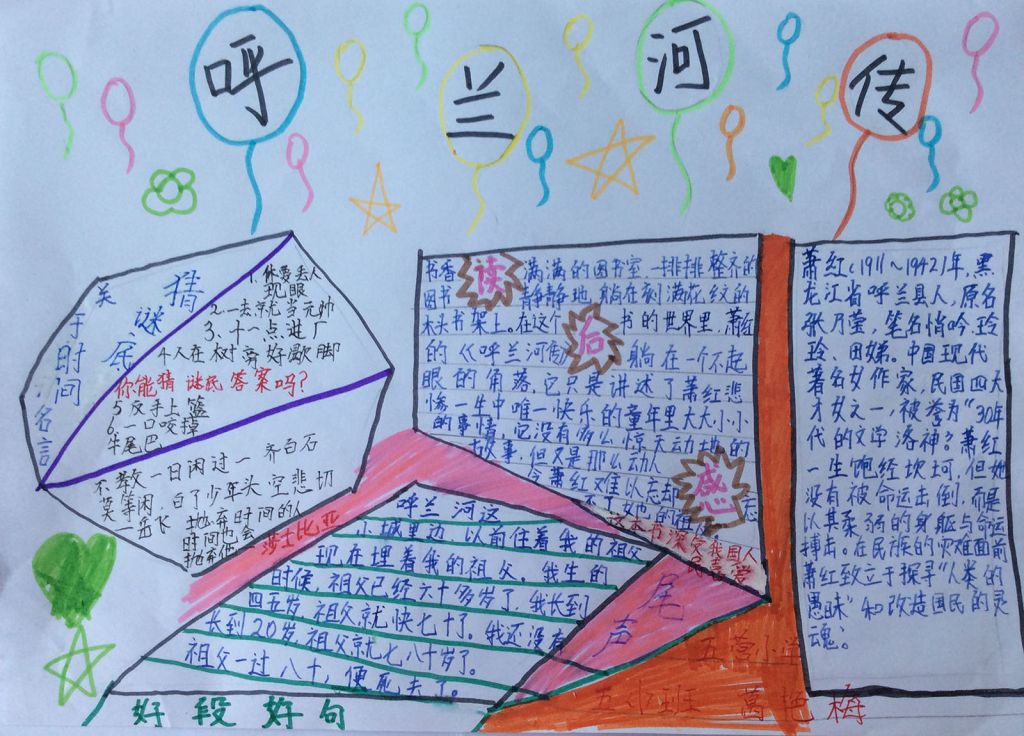 呼兰河传
关于时间名言
猜谜底
1.你要丢人
现眼
2.一去就当元帅
3.十一点进厂
4人在树旁好歇脚
你能猜谜底答案吗？
5反手上篮
6.一口咬掉
牛尾巴
不教一日闲过一 齐白石
莫等闲，白了少年头 空悲切
岳飞 抛弃时间的人
时间也会
抛弃他
莎士比亚
读后感
书香 满满的图书室，一排排整齐的
图书 静静地躺在刻满花纹的
木头书架上。在这个 书的世界里，萧红
的《呼兰河传》 躺在一个不起
眼的角落，它只是讲述了萧红悲
惨一生中唯一快乐的童年里大大小小
的事情，它没有多么惊天动地的
故事，但又是那么动人
令萧红难以忘却
这本书深受我国人
喜爱
呼兰河这
小城里边以前住着我的祖父
现在埋着我的祖父。我生的
时候，祖父已经六十多岁了，我长到
四五岁 祖父就快七十了。我还没有
长到20岁 祖父就七八十岁了。
祖父一过八十，便死去了。
好段好句
尾声
萧红（1911～1942）年，黑
龙江省呼兰县人，原名
张乃莹，笔名悄吟 玲
玲、田娣。中国现代
著名女作家，民国四大
才女之一，被誉为“30年
代的文学洛神？萧红
一生饱经坎坷，但她
没有被命运击倒，而是
以其柔弱的身躯与命运
搏击。在民族的灾难面前
萧红致立于探寻“人类的
愚昧”和改造国民的灵
魂。
五营小学
五（1）班 万艳梅